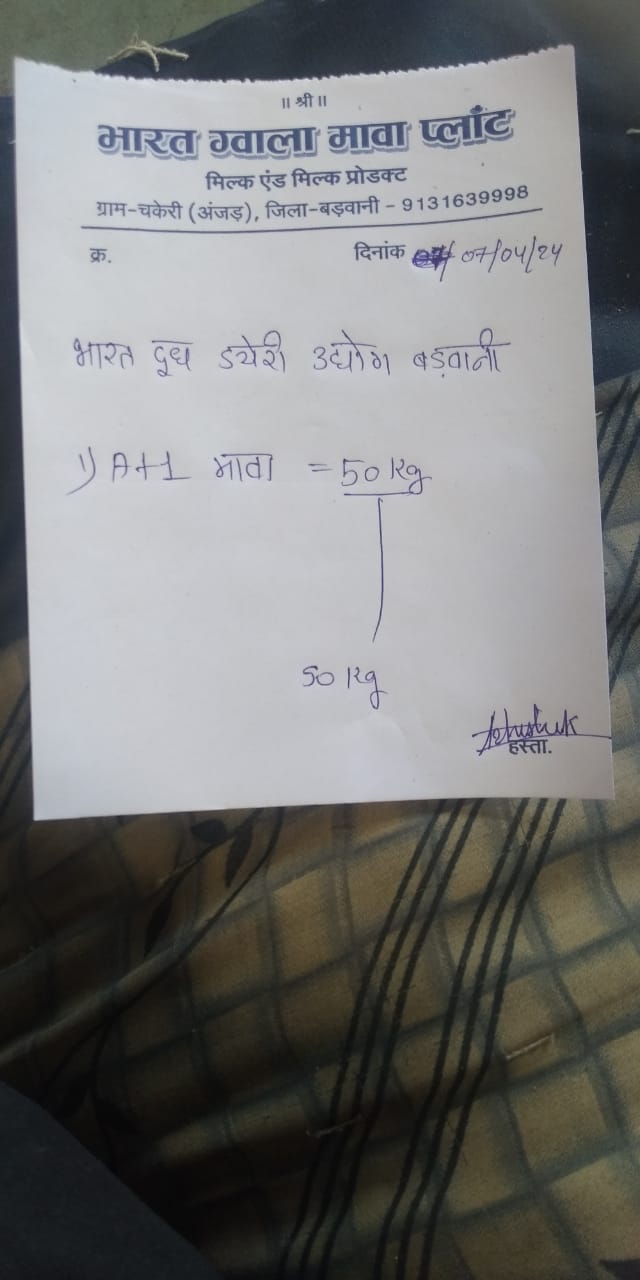 ॥ श्री ॥
भारत ग्वाला मावा प्लाँट
मिल्क एंड मिल्क प्रोडक्ट
ग्राम-चकेरी (अंजड़), जिला-बड़वानी - 9131639998
क्र. दिनांक 07/04/24
भारत दूध डयेरी उद्योग बड़वानी
1) A+1 मावा = 50 Kg
50 Kg
हस्ता.